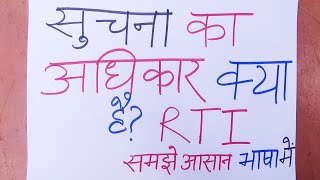 सुचना का
अधिकार क्या
है? RTI
समझे आसान भाषा में